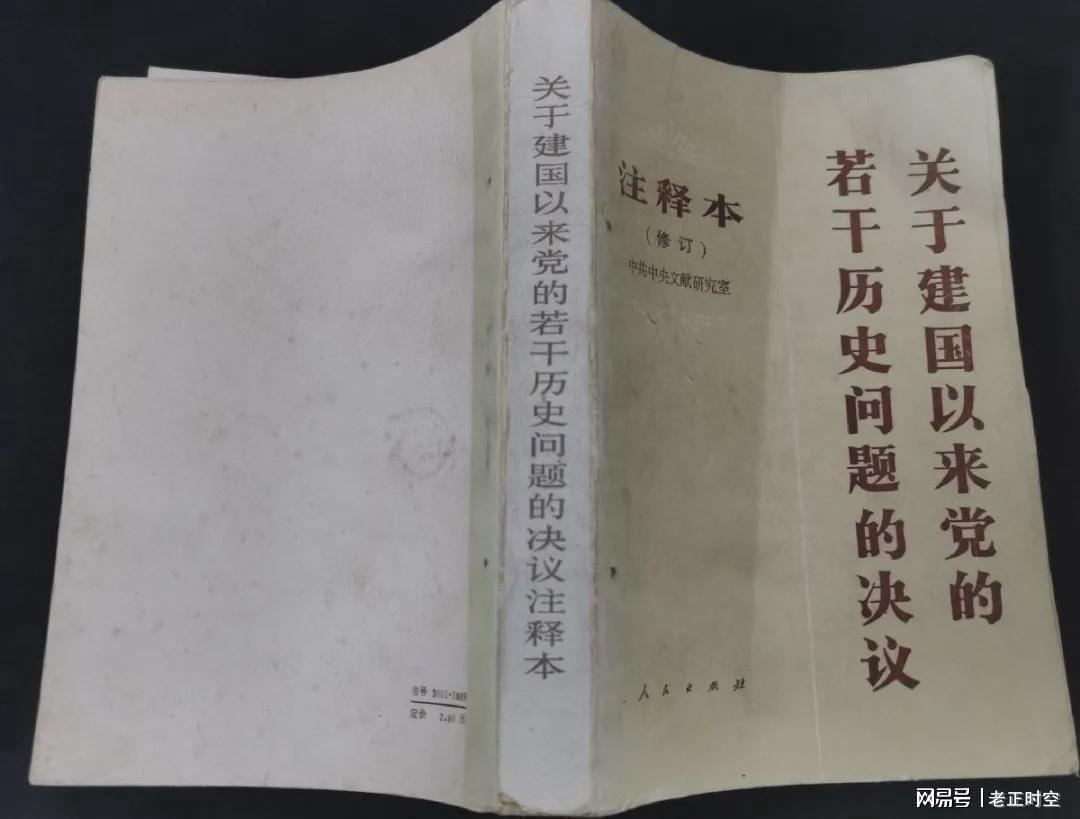 关于建国以来党的
若干历史问题的决议
注释本
（修订）
中共中央文献研究室
人民出版社
关于建国以来党的若干历史问题的决议注释本
书号
定价 2.80 元
网易号 | 老正时空